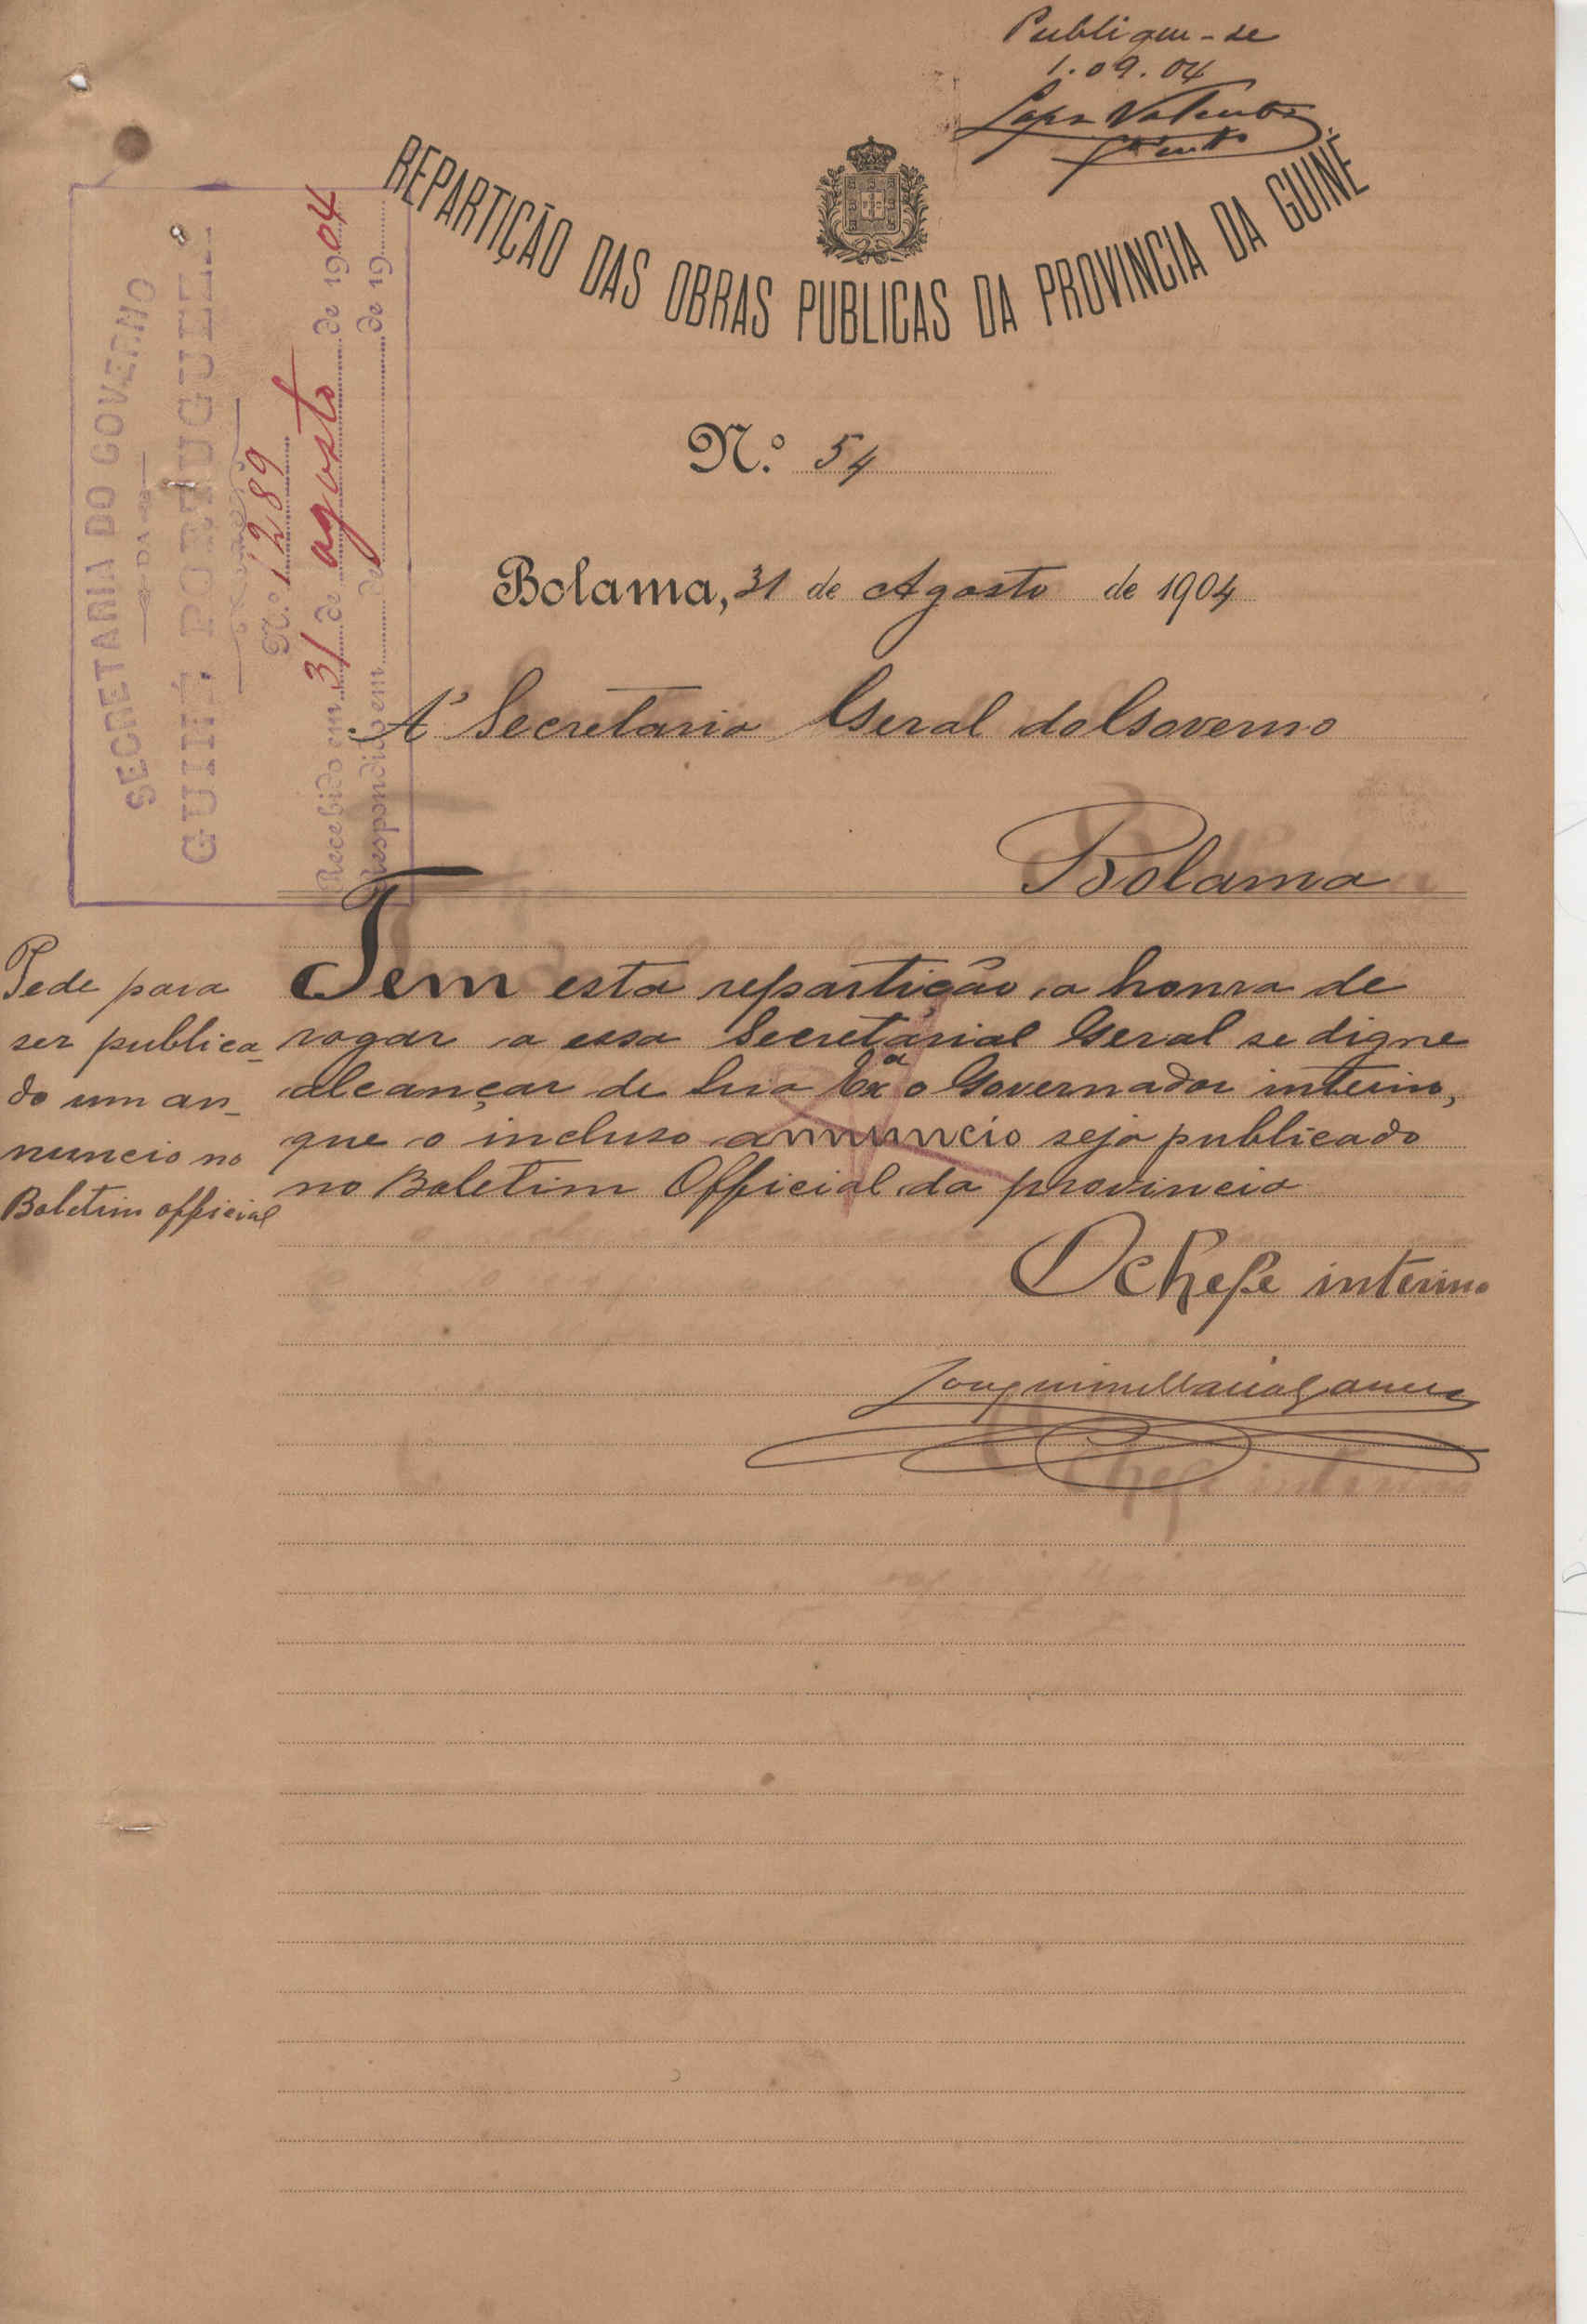 Publique-se
1.09.04
REPARTIÇÃO DAS OBRAS PUBLICAS DA PROVINCIA DA GUINÉ
SECRETARIA DO GOVERNO
DA
GUINÉ PORTUGUEZA
N.º 1289
Recebido em 31 de agosto de 1904
Respondido em de de 19
N.º 54
Bolama, 31 de Agosto de 1904
Á Secretaria Geral do Governo
Bolama
Pede para
ser publica-
do um an-
nuncio no
Boletim official
Tem esta repartição, a honra de
rogar a essa Secretarial Geral se digne
alcançar de Sua Exª o Governador interino,
que o incluso annuncio seja publicado
no Boletim Official da provincia
O chefe interino
Joaquim Maria